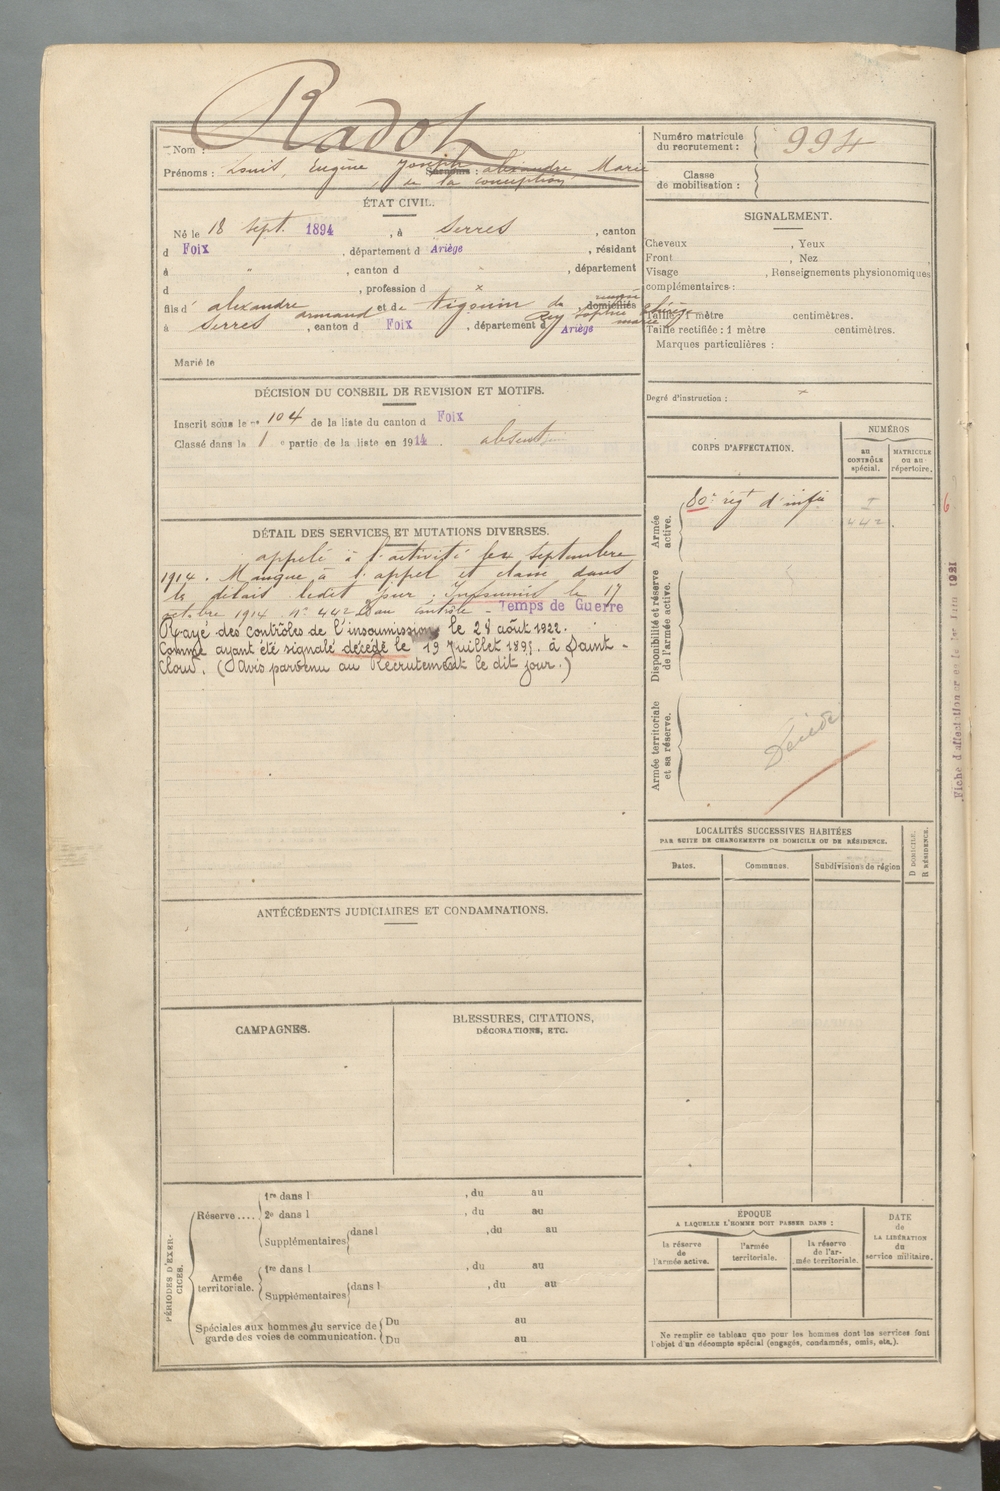 Radot
Nom :
Prénoms : Louis, Eugène Joseph alexandre, Marie
de la conception
ÉTAT CIVIL.
Né le 18 sept. 1894, à Serres, canton
d Foix, département d Ariège, résidant
à " , canton d , département
d , profession d x
fils d' alexandre armand et de Vigouin de domiciliés
Rey Sophie marie
à Serres, canton d Foix, département d Ariège
Marié le
DÉCISION DU CONSEIL DE REVISION ET MOTIFS.
Inscrit sous le n° 104 de la liste du canton d Foix
Classé dans la 1 e partie de la liste en 1914. absent
DÉTAIL DES SERVICES ET MUTATIONS DIVERSES.
appelé à l'activité le 4 septembre
1914. Manque à l'appel et classé dans
les délais ledit jour. Insoumis le 17
octobre 1914. n° 442 du contrôle - Temps de Guerre
Rayé des contrôles de l'insoumission le 28 août 1922.
Comme ayant été signalé décédé le 19 Juillet 1895. à Saint-
Cloud. (Avis parvenu au Recrutement le dit jour.)
ANTÉCÉDENTS JUDICIAIRES ET CONDAMNATIONS.
CAMPAGNES.
BLESSURES, CITATIONS,
DÉCORATIONS, ETC.
PÉRIODES D'EXERCICES.
Réserve....
1re dans l , du au
2e dans l , du au
Supplémentaires dans l , du au
Armée territoriale.
1re dans l , du au
Supplémentaires dans l , du au
Spéciales aux hommes du service de
garde des voies de communication.
Du au
Du au
Numéro matricule
du recrutement : 994
Classe
de mobilisation :
SIGNALEMENT.
Cheveux , Yeux
Front , Nez
Visage , Renseignements physionomiques
complémentaires :
Taille : 1 mètre centimètres.
Taille rectifiée : 1 mètre centimètres.
Marques particulières :
Degré d'instruction : x
CORPS D'AFFECTATION.
NUMÉROS
au
CONTRÔLE
spécial.
MATRICULE
OU AU
répertoire.
Armée
active.
80e régt d'infie
I
442
Disponibilité et réserve
de l'armée active.
Armée territoriale
et sa réserve.
Décédé
LOCALITÉS SUCCESSIVES HABITÉES
PAR SUITE DE CHANGEMENTS DE DOMICILE OU DE RÉSIDENCE.
Dates.
Communes.
Subdivisions de région
D DOMICILE.
R RÉSIDENCE.
ÉPOQUE
A LAQUELLE L'HOMME DOIT PASSER DANS :
la réserve
de
l'armée active.
l'armée
territoriale.
la réserve
de l'ar-
mée territoriale.
DATE
de
LA LIBÉRATION
du
service militaire.
Ne remplir ce tableau que pour les hommes dont les services font
l'objet d'un décompte spécial (engagés, condamnés, omis, etc.).